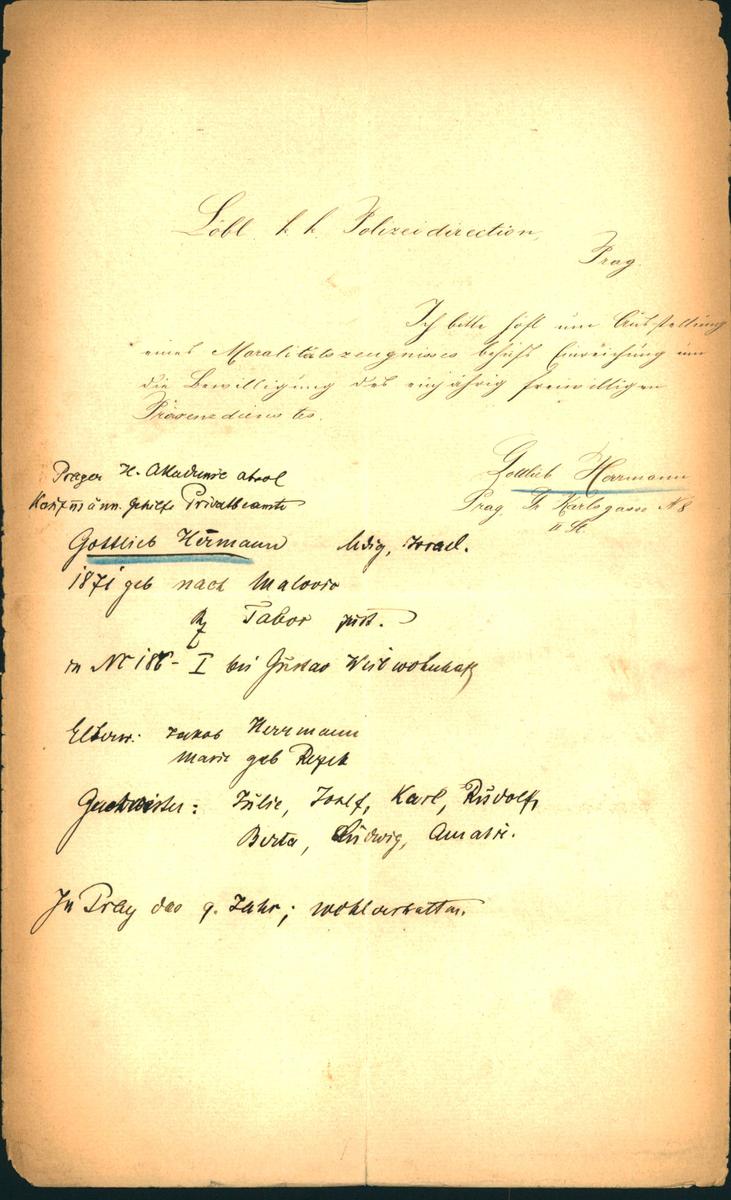 Löbl. k. k. Polizeidirection,
Prag.
Ich bitte höfl. um Ausstellung
eines Moralitätszeugnisses behufs Einreichung um
die Bewilligung des einjährig freiwilligen
Präsenzdienstes.
Gottlieb Herrmann
Prag, Karlsgasse N 8
II St.
Prager H. Akademie absol
Kaufmänn. Gehilfe Privatbeamte
Gottlieb Hermann ledig, Israel.
1871 geb nach Malovic
Bz Tabor zust.
in Nr 186- I bei Gustav wohnhaft
Eltern: Jakob Herrmann
Marie geb
Geschwister: Julie, Josef, Karl, Rudolf,
Berta, Ludwig, Amalie.
In Prag das 9. Jahr; wohlverhalten.